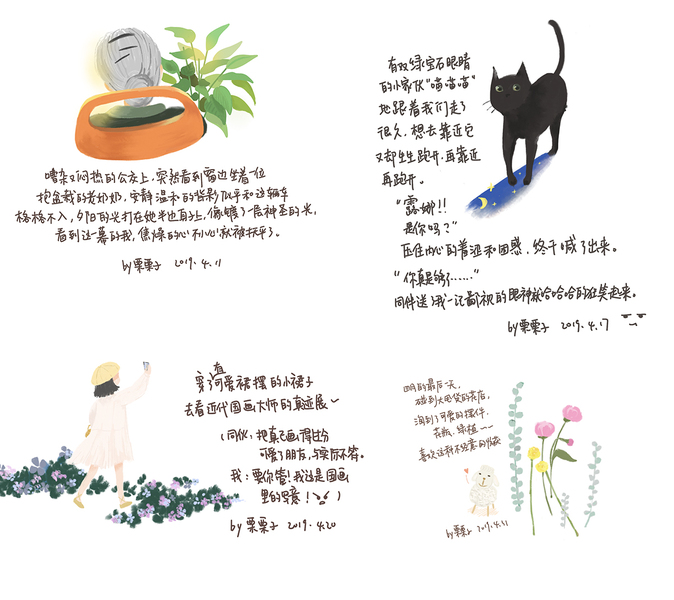 嘈杂又闷热的公交上，突然看到窗边坐着一位
抱盆栽的老奶奶，安静温和的背影似乎和这辆车
格格不入，夕阳的光打在她半边身子上，像镀了一层神圣的光，
看到这一幕的我，焦燥的心不小心就被抚平了。
by栗栗子 2019.4.11
有双绿宝石眼睛
的小家伙"喵喵喵"
地跟着我们走了
很久，想去靠近它
又却生生跑开，再靠近
再跑开。
"露娜!!
是你吗？"
压住内心的羞涩和困惑，终于喊了出来。
"你真是够了……"
同伴送了我一记鄙视的眼神就哈哈哈的狂笑起来。
by栗栗子 2019.4.17
穿了有可爱裙摆的小裙子
去看近代国画大师的真迹展~
（同伙：把自己画得过分
可爱了朋友，与实际不符。
我：要你管！我这是国画
里的写意！ ）
by栗栗子 2019.4.20
四月的最后一天，
碰到大甩货的花店，
淘到了可爱的摆件、
花瓶、绿植~~
喜欢这种不经意的收获
by栗栗子 2019.4.